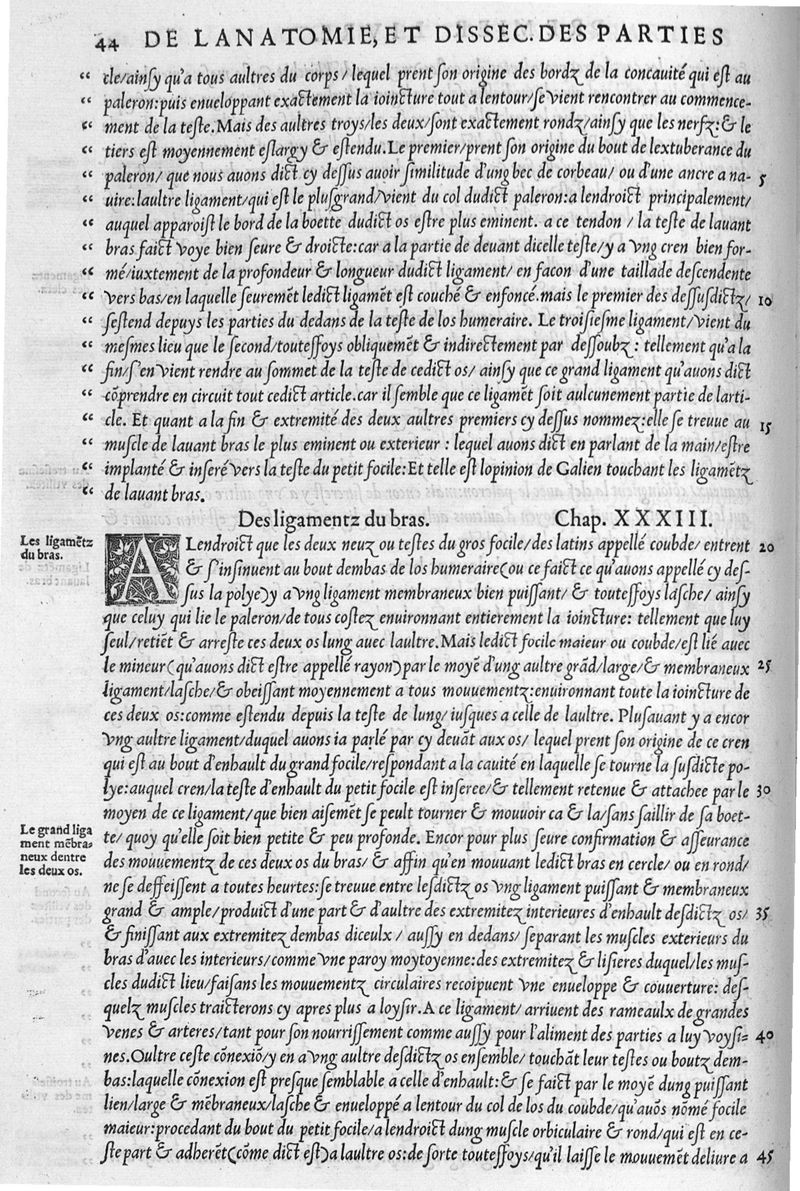 44 DE LANATOMIE, ET DISSEC. DES PARTIES
“ cle/ainſy qu'a tous aultres du corps/ lequel prent ſon origine des bordz de la concauité qui eſt au
“ paleron:puis enueloppant exactement la ioincture tout a lentour/ſe vient rencontrer au commence-
“ ment de la teſte. Mais des aultres troys/les deux/ſont exactement rondz/ainſy que les nerfz:& le
“ tiers eſt moyennement eſlargy & eſtendu. Le premier/prent ſon origine du bout de lextuberance du
“ paleron/ que nous auons dict cy deſſus auoir ſimilitude d'ung bec de corbeau/ ou d'une ancre a na- 5
“ uire:laultre ligament/qui eſt le pluſgrand/vient du col dudict paleron:a lendroict principalement/
“ auquel apparoiſt le bord de la boette dudict os eſtre plus eminent. a ce tendon / la teſte de lauant
“ bras faict voye bien ſeure & droicte:car a la partie de deuant dicelle teſte/y a vng cren bien for-
“ mé/iuxtement de la profondeur & longueur dudict ligament/ en facon d'une taillade deſcendente
“ vers bas/en laquelle ſeuremēt ledict ligamēt eſt couché & enfoncé.mais le premier des deſſuſdictz/ 10
“ ſeſtend depuys les parties du dedans de la teſte de los humeraire. Le troiſieſme ligament/vient du
“ meſmes lieu que le ſecond/touteſſoys obliquemēt & indirectement par deſſoubz : tellement qu'a la
“ fin/ſ'en vient rendre au ſommet de la teſte de cedict os/ ainſy que ce grand ligament qu'auons dict
“ cōprendre en circuit tout cedict article.car il ſemble que ce ligamēt ſoit aulcunement partie de larti-
“ cle. Et quant a la fin & extremité des deux aultres premiers cy deſſus nommez:elle ſe treuue au 15
“ muſcle de lauant bras le plus eminent ou exterieur : lequel auons dict en parlant de la main/eſtre
“ implanté & inſeré vers la teſte du petit focile:Et telle eſt lopinion de Galien touchant les ligamētz
“ de lauant bras.
Des ligamentz du bras. Chap. XXXIII.
Les ligamētz
du bras.
A Lendroict que les deux neuz ou teſtes du gros focile/des latins appellé coubde/ entrent 20
& ſ'inſinuent au bout dembas de los humeraire(ou ce faict ce qu'auons appellé cy deſ-
ſus la polye)y a vng ligament membraneux bien puiſſant/ & touteſſoys laſche/ ainſy
que celuy qui lie le paleron/de tous coſtez enuironnant entierement la ioincture: tellement que luy
ſeul/retiēt & arreſte ces deux os lung auec laultre. Mais ledict focile maieur ou coubde/eſt lié auec
le mineur(qu'auons dict eſtre appellé rayon)par le moyē d'ung aultre grād/large/& membraneux 25
ligament/laſche/& obeiſſant moyennement a tous mouuementz:enuironnant toute la ioincture de
ces deux os:comme eſtendu depuis la teſte de lung/iuſques a celle de laultre. Pluſauant y a encor
vng aultre ligament/duquel auons ia parlé par cy deuāt aux os/ lequel prent ſon origine de ce cren
qui eſt au bout d'enhault du grand focile/reſpondant a la cauité en laquelle ſe tourne la ſuſdicte po-
lye:auquel cren/la teſte d'enhault du petit focile eſt inſeree/& tellement retenue & attachee par le 30
moyen de ce ligament/que bien aiſemēt ſe peult tourner & mouuoir ca & la/ſans ſaillir de ſa boet-
te/ quoy qu'elle ſoit bien petite & peu profonde. Encor pour plus ſeure confirmation & aſſeurance
Le grand liga
ment mēbra-
neux dentre
les deux os.
des mouuementz de ces deux os du bras/ & affin qu'en mouuant ledict bras en cercle/ ou en rond/
ne ſe deffeiſſent a toutes heurtes:ſe treuue entre leſdictz os vng ligament puiſſant & membraneux
grand & ample/produict d'une part & d'aultre des extremitez interieures d'enhault deſdictz os/ 35
& finiſſant aux extremitez dembas diceulx / auſſy en dedans/ ſeparant les muſcles exterieurs du
bras d'auec les interieurs/comme vne paroy moytoyenne:des extremitez & liſieres duquel/les muſ-
cles dudict lieu/faiſans les mouuementz circulaires recoipuent vne enueloppe & couuerture: deſ-
quelz muſcles traicterons cy apres plus a loyſir. A ce ligament/ arriuent des rameaulx de grandes
venes & arteres/tant pour ſon nourriſſement comme auſſy pour l'aliment des parties a luy voyſi= 40
nes.Oultre ceſte cōnexiō/y en a vng aultre deſdictz os enſemble/ touchāt leur teſtes ou boutz dem-
bas:laquelle cōnexion eſt preſque ſemblable a celle d'enhault:& ſe faict par le moyē dung puiſſant
lien/large & mēbraneux/laſche & enueloppé a lentour du col de los du coubde/qu'auōs nōmé focile
maieur:procedant du bout du petit focile/a lendroict dung muſcle orbiculaire & rond/qui eſt en ce-
ſte part & adherēt(cōme dict eſt)a laultre os:de ſorte touteſſoys/qu'il laiſſe le mouuemēt deliure a 45